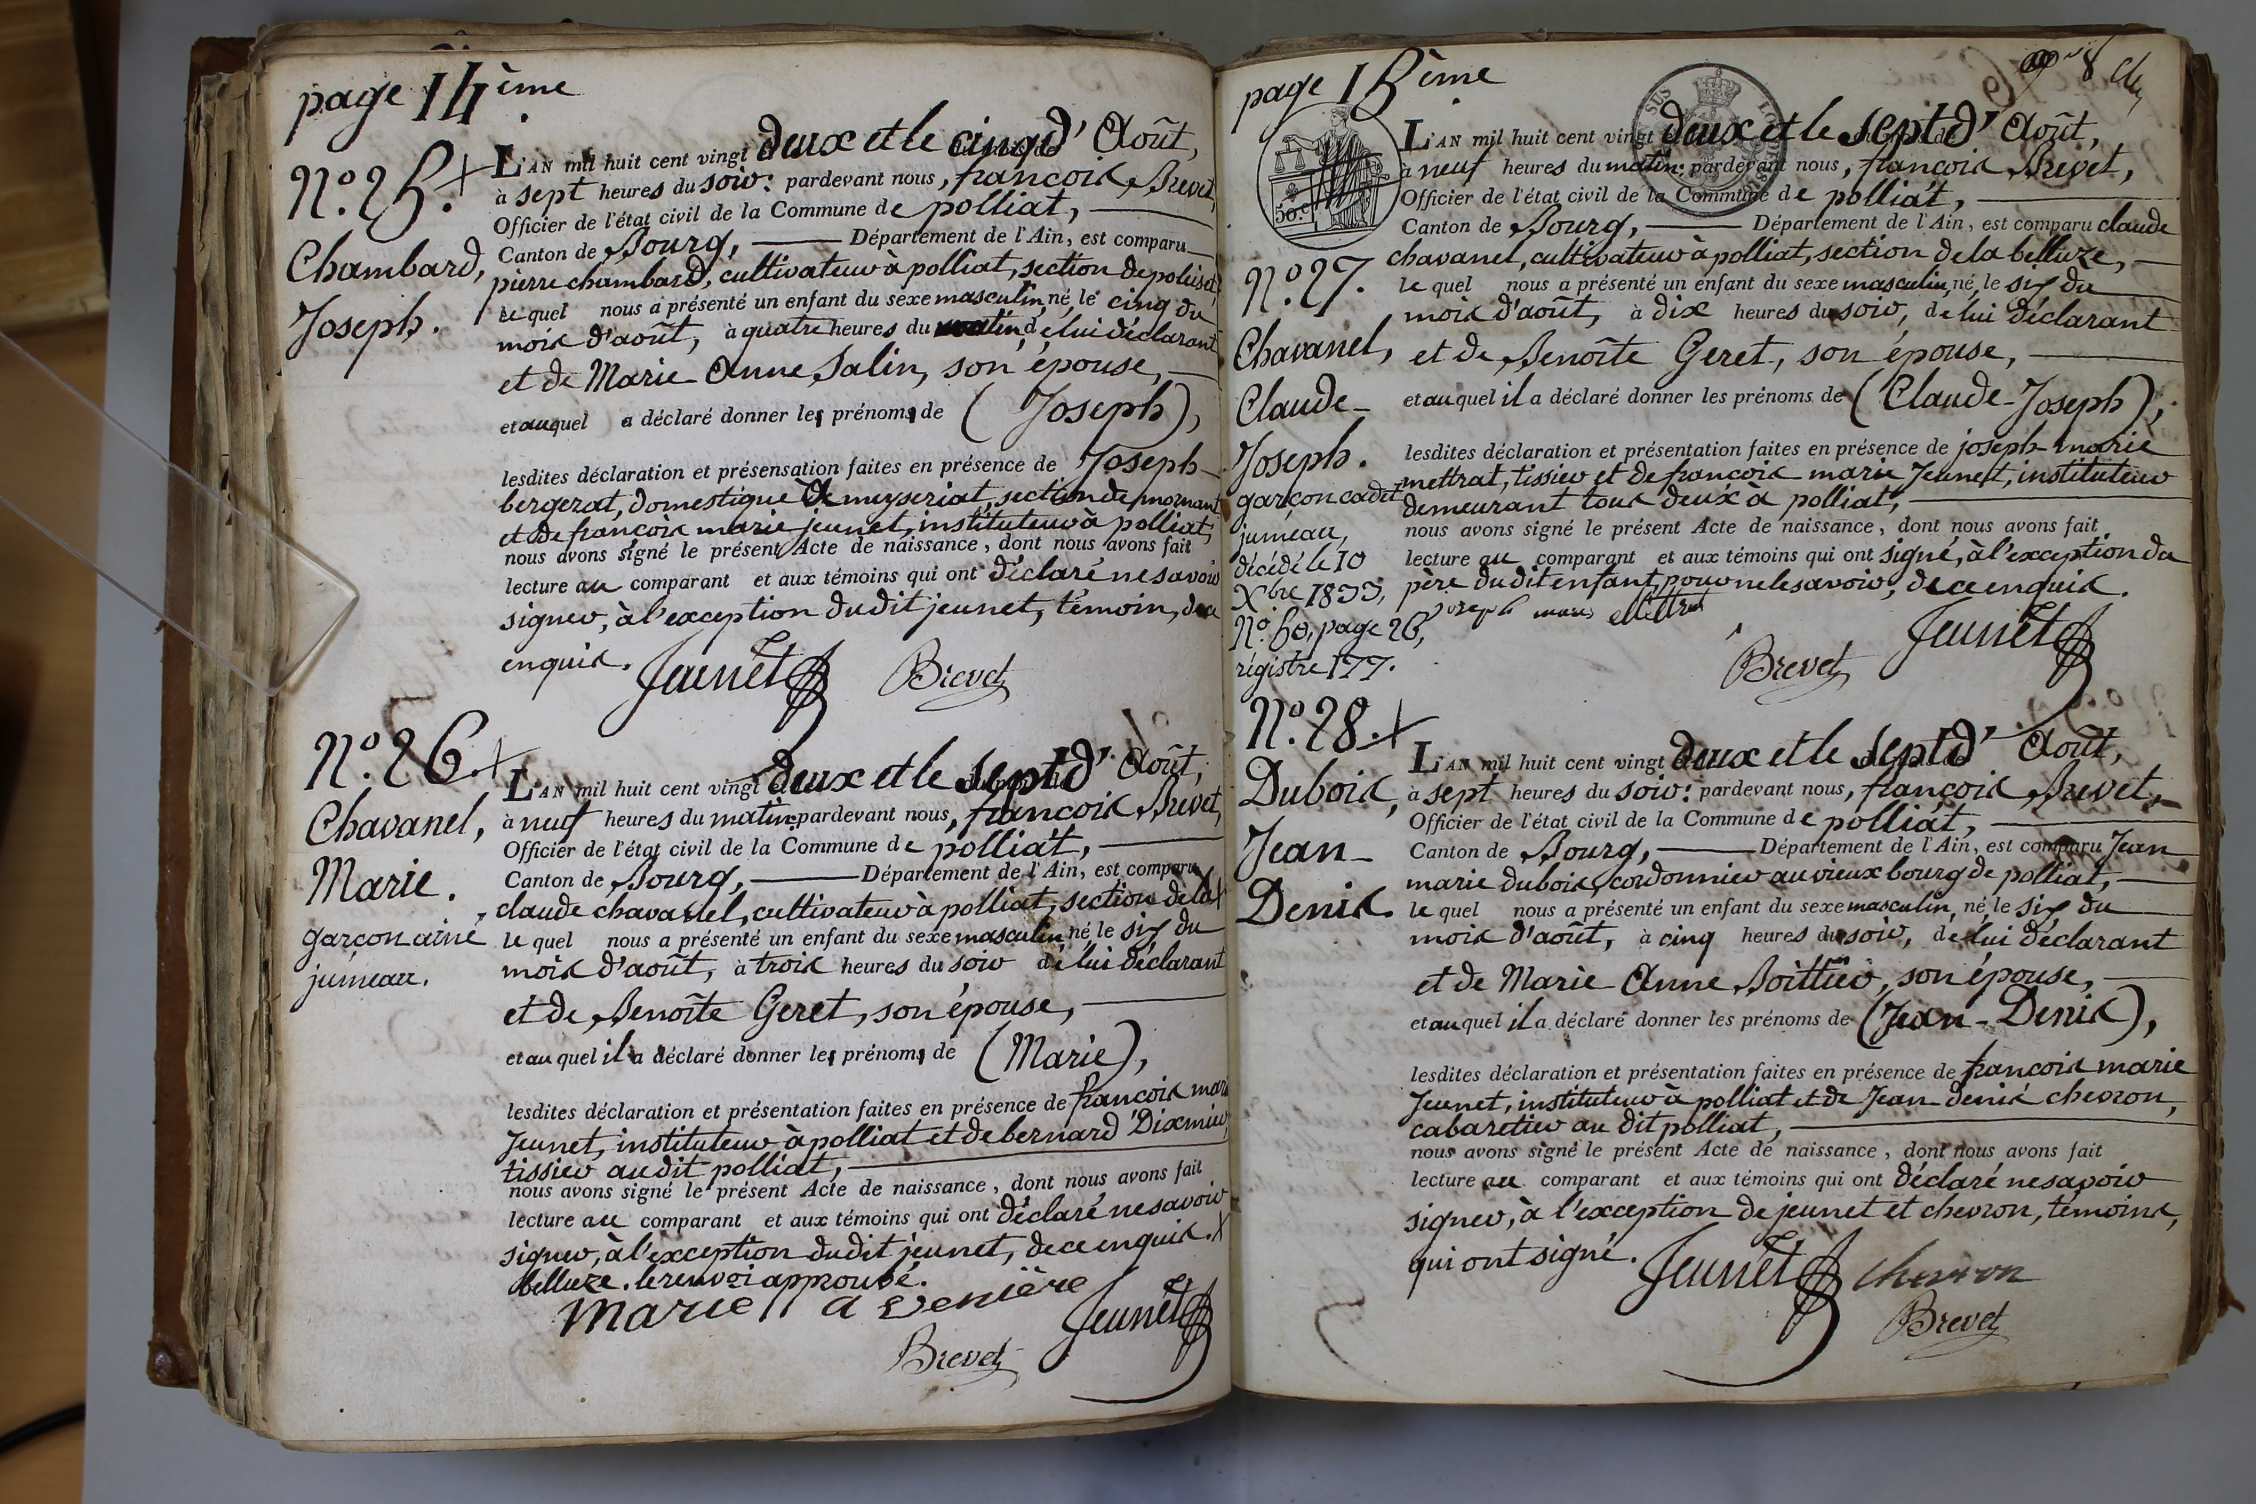 page 14ème
N.o 25. +
Chambard,
Joseph.
L'AN mil huit cent vingt deux et le cinq d'Août,
à sept heures du soir: pardevant nous, françois Brevet,
Officier de l'état civil de la Commune de polliat,
Canton de Bourg, Département de l'Ain, est comparu
pierre chambard, cultivateur à polliat, section de poluset,
le quel nous a présenté un enfant du sexe masculin, né, le cinq du
mois d'août, à quatre heures du matin, de lui déclarant
et de Marie Anne Salin, son épouse,
et auquel a déclaré donner les prénoms de (Joseph),
lesdites déclaration et présensation faites en présence de Joseph
bergerat, domestique à meyseriat, section de mornant
et de françois marie jeunet, instituteur à polliat,
nous avons signé le présent Acte de naissance, dont nous avons fait
lecture au comparant et aux témoins qui ont déclaré ne savoir
signer, à l'exception dudit jeunet, témoin, de ce
enquis.
Jeunet Brevet
N.o 26. +
Chavanel,
Marie.
garçon ainé
jumeau.
L'AN mil huit cent vingt deux et le sept d'Août,
à neuf heures du matin: pardevant nous, françois Brevet,
Officier de l'état civil de la Commune de polliat,
Canton de Bourg, Département de l'Ain, est comparu
claude chavanel, cultivateur à polliat, section de la X
le quel nous a présenté un enfant du sexe masculin, né le six du
mois d'août, à trois heures du soir de lui déclarant
et de Benoîte Geret, son épouse,
et au quel il a déclaré donner les prénoms de (Marie),
lesdites déclaration et présentation faites en présence de françois marie
Jeunet, instituteur à polliat et de bernard Dixmier,
tissier au dit polliat,
nous avons signé le présent Acte de naissance, dont nous avons fait
lecture au comparant et aux témoins qui ont déclaré ne savoir
signer, à l'exception dudit jeunet, de ce enquis. X
belluze. le renvoi approuvé.
marie a venière Jeunet
Brevet
page 15ème
50 c
N.o 27.
Chavanel,
Claude-
Joseph.
garçon cadet
jumeau,
décédé le 10
Xbre 1833,
N.o 60, page 26,
régistre 177.
L'AN mil huit cent vingt deux et le sept d'Août,
à neuf heures du matin: pardevant nous, françois Brevet,
Officier de l'état civil de la Commune de polliat,
Canton de Bourg, Département de l'Ain, est comparu claude
chavanel, cultivateur à polliat, section de la belluze,
le quel nous a présenté un enfant du sexe masculin, né, le six du
mois d'août, à dix heures du soir, de lui déclarant
et de Benoîte Geret, son épouse,
et au quel il a déclaré donner les prénoms de (Claude-Joseph),
lesdites déclaration et présentation faites en présence de joseph marie
mettrat, tissier et de françois marie Jeunet, instituteur
demeurant tous deux à polliat,
nous avons signé le présent Acte de naissance, dont nous avons fait
lecture au comparant et aux témoins qui ont signé, à l'exception du
père du dit enfant, pour ne le savoir, de ce enquis.
joseph marie Mettrat
Jeunet
Brevet
N.o 28. +
Dubois,
Jean-
Denis.
L'AN mil huit cent vingt deux et le sept d'Août,
à sept heures du soir: pardevant nous, françois Brevet,
Officier de l'état civil de la Commune de polliat,
Canton de Bourg, Département de l'Ain, est comparu Jean
marie dubois, cordonnier au vieux bourg de polliat,
le quel nous a présenté un enfant du sexe masculin, né, le six du
mois d'août, à cinq heures du soir, de lui déclarant
et de Marie Anne Boittier, son épouse,
et au quel il a déclaré donner les prénoms de (Jean-Denis),
lesdites déclaration et présentation faites en présence de françois marie
Jeunet, instituteur à polliat et de Jean denis chevron,
cabaretier au dit polliat,
nous avons signé le présent Acte de naissance, dont nous avons fait
lecture au comparant et aux témoins qui ont déclaré ne savoir
signer, à l'exception de jeunet et chevron, témoins,
qui ont signé.
Jeunet chevron
Brevet